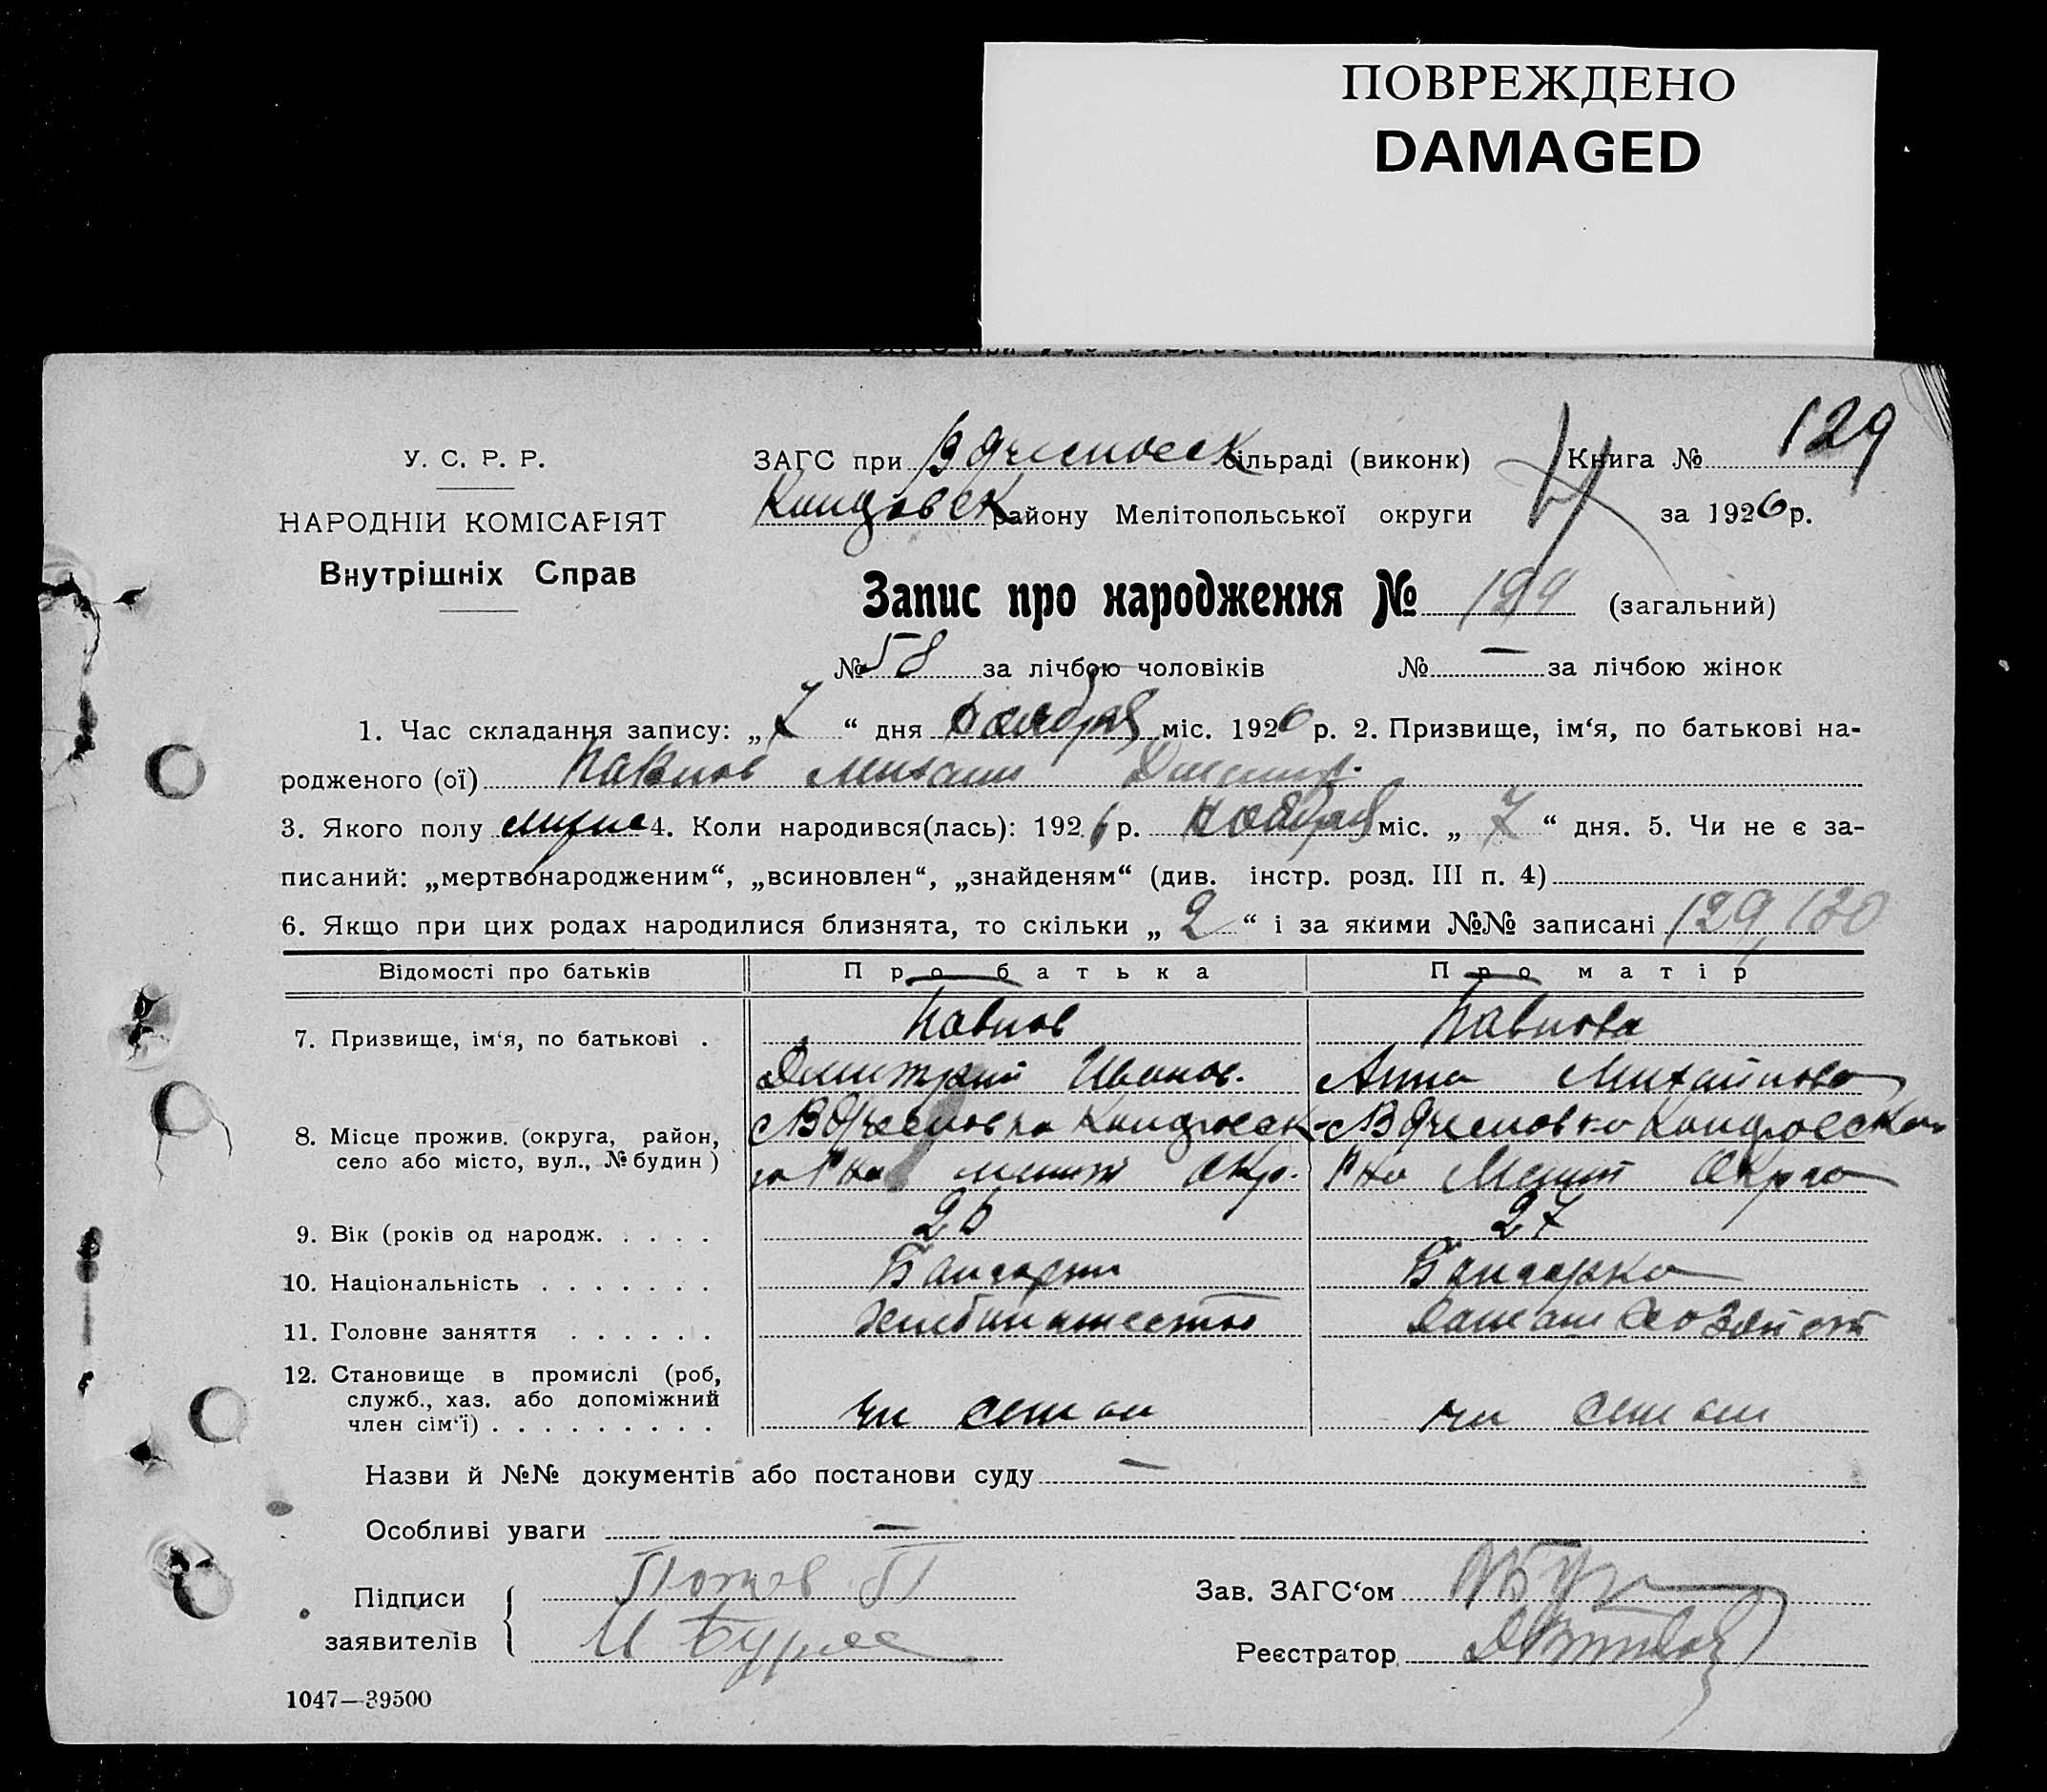 ПОВРЕЖДЕНО
DAMAGED
129
У. С. Р. Р.
НАРОДНІЙ КОМІСАРІЯТ
Внутрішніх Справ
ЗАГС при сільраді (виконк) Книга №
району Мелітопольської округи за 1926 р.
Запис про народження № 129 (загальний)
№ 58 за лічбою чоловіків № — за лічбою жінок
1. Час складання запису: „ 7 “ дня міс. 1926 р. 2. Призвище, ім‘я, по батькові на-
родженого (ої) Павлов Михаил Дмитр.
3. Якого полу 4. Коли народився(лась): 1926 р. ноября міс. „ 7 “ дня. 5. Чи не є за-
писаний: „мертвонародженим“, „всиновлен“, „знайденям“ (див. інстр. розд. III п. 4)
6. Якщо при цих родах народилися близнята, то скільки „ 2 “ і за якими №№ записані 129, 130
Відомості про батьків Про батька Про матір
7. Призвище, ім‘я, по батькові . Павлов Павлова
Дмитрий Иванов. Анна Михайлова
8. Місце прожив. (округа, район,
село або місто, вул., № будин )
р на Мелит Окр. р на Мелит Окр
9. Вік (років од народж. . . . . 26 27
10. Національність . . . . . . . Болгарин Болгарка
11. Головне заняття . . . . . . хлебопашество Домаш хозяйст
12. Становище в промислі (роб,
служб., хаз. або допоміжний
член сім‘ї) . . . . . . . . . чл семьи чл семьи
Назви й №№ документів або постанови суду —
Особливі уваги —
Підписи
заявителів
Зав. ЗАГС‘ом
Реєстратор
1047—39500